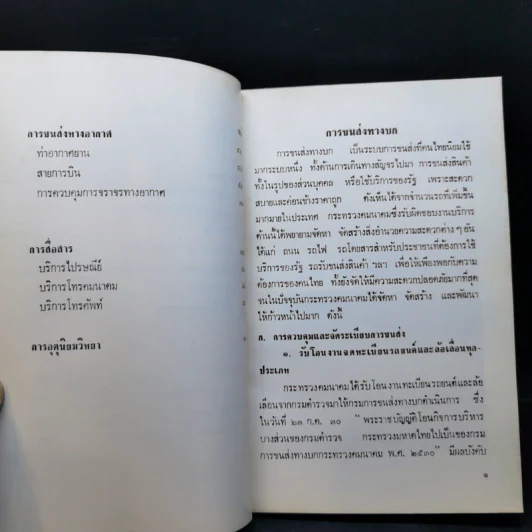 การขนส่งทางอากาศ
ท่าอากาศยาน
สายการบิน
การควบคุมการจราจรทางอากาศ
การสื่อสาร
บริการไปรษณีย์
บริการโทรคมนาคม
บริการโทรศัพท์
การอุตุนิยมวิทยา
การขนส่งทางบก
การขนส่งทางบก เป็นระบบการขนส่งที่คนไทยนิยมใช้
มากระบบหนึ่ง ทั้งด้านการเดินทางสัญจรไปมา การขนส่งสินค้า
ทั้งในรูปของส่วนบุคคล หรือใช้บริการของรัฐ เพราะสะดวก
สบายและค่อนข้างราคาถูก ดังเห็นได้จากจำนวนรถที่เพิ่มขึ้น
มากมายในประเทศ กระทรวงคมนาคมซึ่งรับผิดชอบงานบริการ
ด้านนี้ได้พยายามจัดหา จัดสร้างสิ่งอำนวยความสะดวกต่าง ๆ อัน
ได้แก่ ถนน รถไฟ รถโดยสารสำหรับประชาชนที่ต้องการใช้
บริการของรัฐ รถรับขนส่งสินค้า ฯลฯ เพื่อให้เพียงพอกับความ
ต้องการของคนไทย ทั้งยังจัดให้มีความสะดวกปลอดภัยมากที่สุด
จนในปัจจุบันกระทรวงคมนาคมได้จัดหา จัดสร้าง และพัฒนา
ให้ก้าวหน้าไปมาก ดังนี้
ก. การควบคุมและจัดระเบียบการขนส่ง
๑. รับโอนงานจดทะเบียนรถยนต์และล้อเลื่อนทุก-
ประเภท
กระทรวงคมนาคมได้รับโอนงานทะเบียนรถยนต์และล้อ
เลื่อนจากกรมตำรวจมาให้กรมการขนส่งทางบกดำเนินการ ซึ่ง
ในวันที่ ๒๓ ก.ค. ๓๐ " พระราชบัญญัติโอนกิจการบริหาร
บางส่วนของกรมตำรวจ กระทรวงมหาดไทยไปเป็นของกรม
การขนส่งทางบกกระทรวงคมนาคม พ.ศ. ๒๕๓๐" มีผลบังคับ
๑